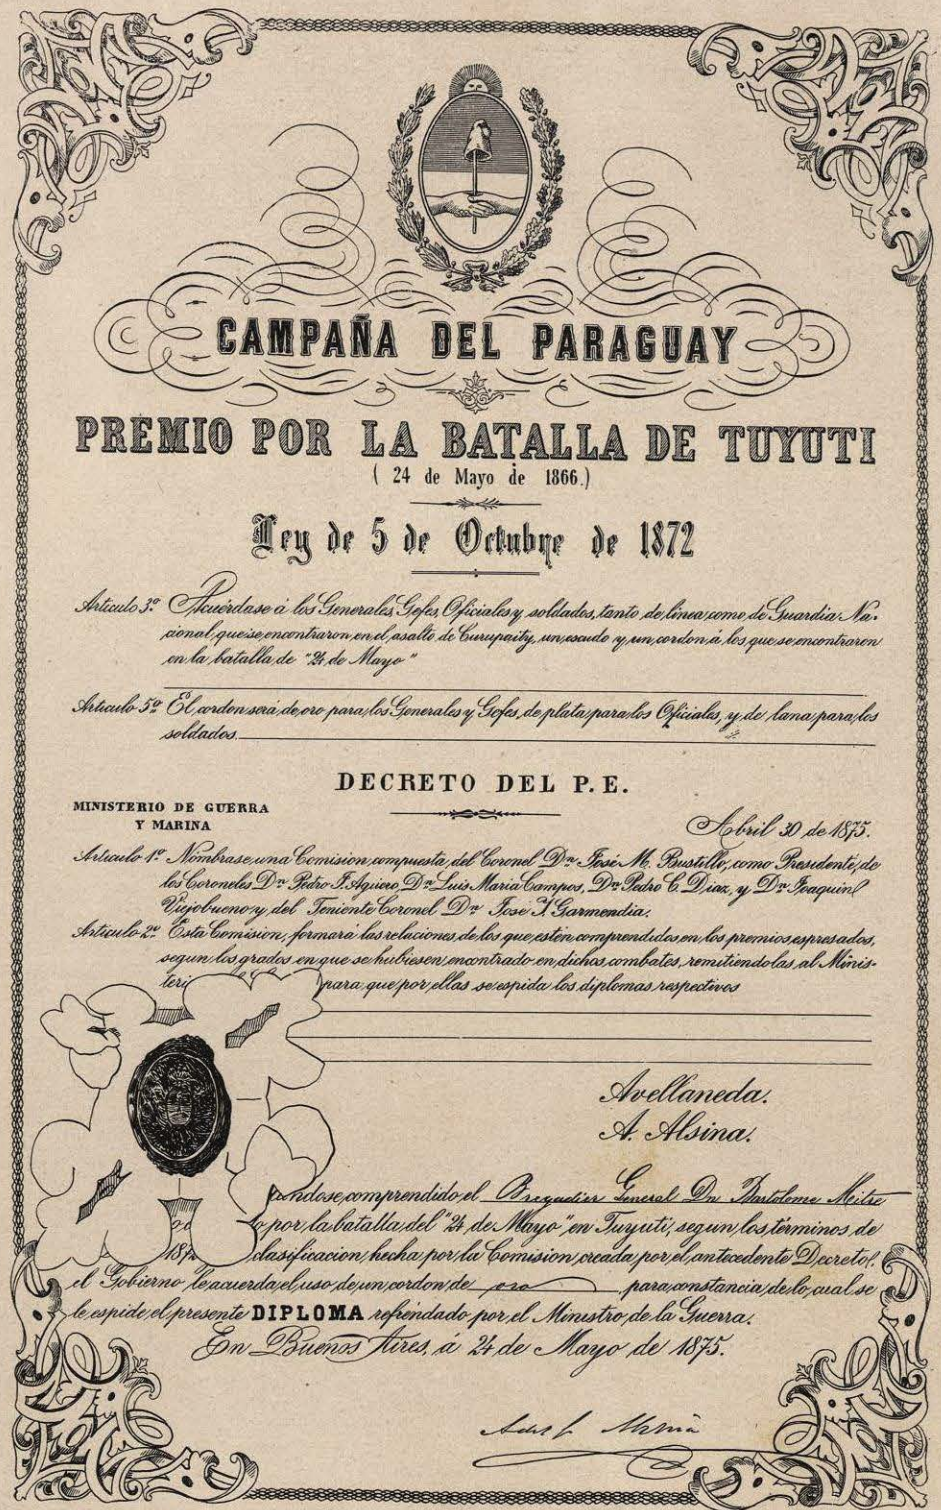 CAMPAÑA DEL PARAGUAY
PREMIO POR LA BATALLA DE TUYUTI
( 24 de Mayo de 1866.)
Ley de 5 de Octubre de 1872
Articulo 3º Acuérdase á los Generales, Gefes, Oficiales y soldados, tanto de línea como de Guardia Na-
cional, que se encontraron en el asalto de Curupaity, un escudo y un cordon á los que se encontraron
en la batalla de "24 de Mayo"
Articulo 5º El cordon será de oro para los Generales y Gefes, de plata para los Oficiales, y de lana para los
soldados.
DECRETO DEL P. E.
MINISTERIO DE GUERRA
Y MARINA
Abril 30 de 1875.
Articulo 1º Nómbrase una Comision compuesta del Coronel Dn José M. Bustillo, como Presidente, de
los Coroneles Dn Pedro J. Agüero, Dn Luis Maria Campos, Dn Pedro C. Diaz, y Dn Joaquin
Viejobueno y del Teniente Coronel Dn José I. Garmendia.
Articulo 2º Esta Comision, formará las relaciones de los que estén comprendidos en los premios espresados,
segun los grados en que se hubiesen encontrado en dichos combates, remitiendolas al Minis-
teri para que por ellas se espida los diplomas respectivos
Avellaneda.
A. Alsina.
ndose comprendido el Bregadier General Dn Bartolome Mitre
o por la batalla del "24 de Mayo" en Tuyuti, segun los términos de
187 clasificacion hecha por la Comision creada por el antecedente Decreto,
el Gobierno le acuerda el uso de un cordon de oro para constancia de lo cual se
le espide el presente DIPLOMA refrendado por el Ministro de la Guerra.
En Buenos Aires, á 24 de Mayo de 1875.